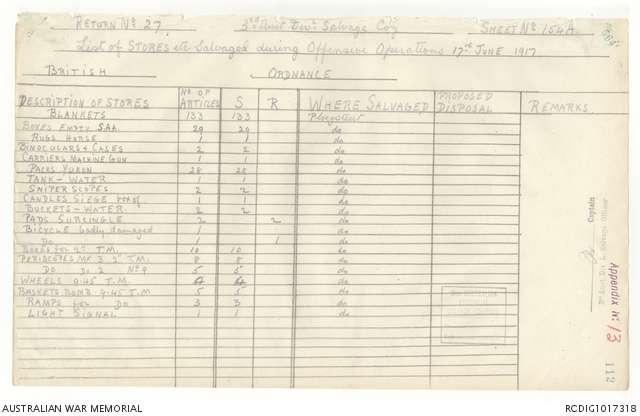 RETURN No 27. 3rd Aust Divl Salvage Coy SHEET No 154A
List of STORES etc Salvaged during Offensive Operations 17th JUNE 1917
BRITISH ORDNANCE
DESCRIPTION OF STORES No OF ARTICLES S R WHERE SALVAGED PROPOSED DISPOSAL REMARKS
BLANKETS 133 133 Ploegsteert
BOXES EMPTY S.A.A. 29 29 do
RUGS HORSE 1 1 do
BINOCULARS & CASES 2 2 do
CARRIERS MACHINE GUN 1 1 do
PACKS YUKON 28 28 do
TANK - WATER 1 1 do
SNIPERSCOPES 2 2 do
CANDLES SIEGE box of 1 1 do
BUCKETS - WATER. 2 2 do
PADS SURCINGLE 2 2 do
BICYCLE badly damaged 1 do
Do 1 1 do
BOXES for 2" T.M. 10 10 do
PERISCOPES MK 3 2" T.M. 8 8 do
DO do 2 No 9 5 5 do
WHEELS 9.45 T.M. do
BASKETS BOMB 9.45 T.M 5 5 do
RAMPS for Do 3 3 do
LIGHT SIGNAL 1 1 do
Captain
Salvage Officer
Appendix No 13
112
AUSTRALIAN WAR MEMORIAL RCDIG1017318